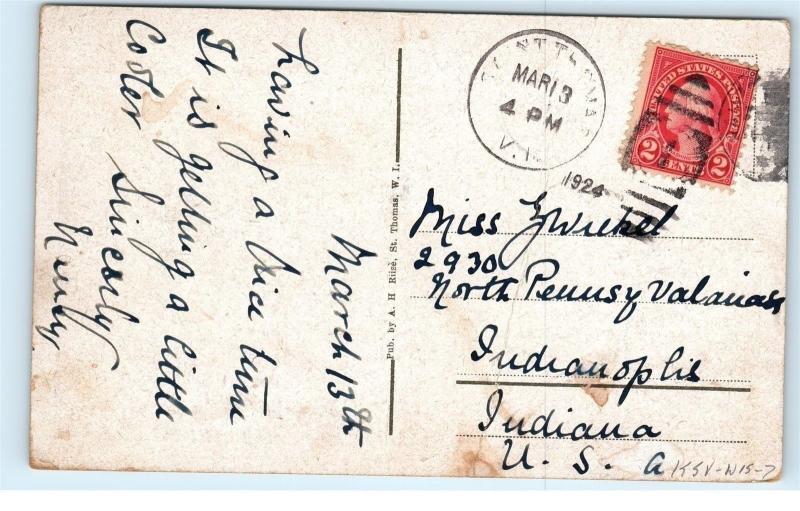 March 13th
Having a Nice time
It is getting a little
Cooler Sincerly
Pub. by A. H Riise, St. Thomas, W. I.
SAINT THOMAS
MAR 13
4 PM
V.I.
1924
UNITED STATES POSTAGE
2 CENTS 2
Miss
2930
North Pennsy Valaniaas
Indianoplis
Indiana
U. S. a